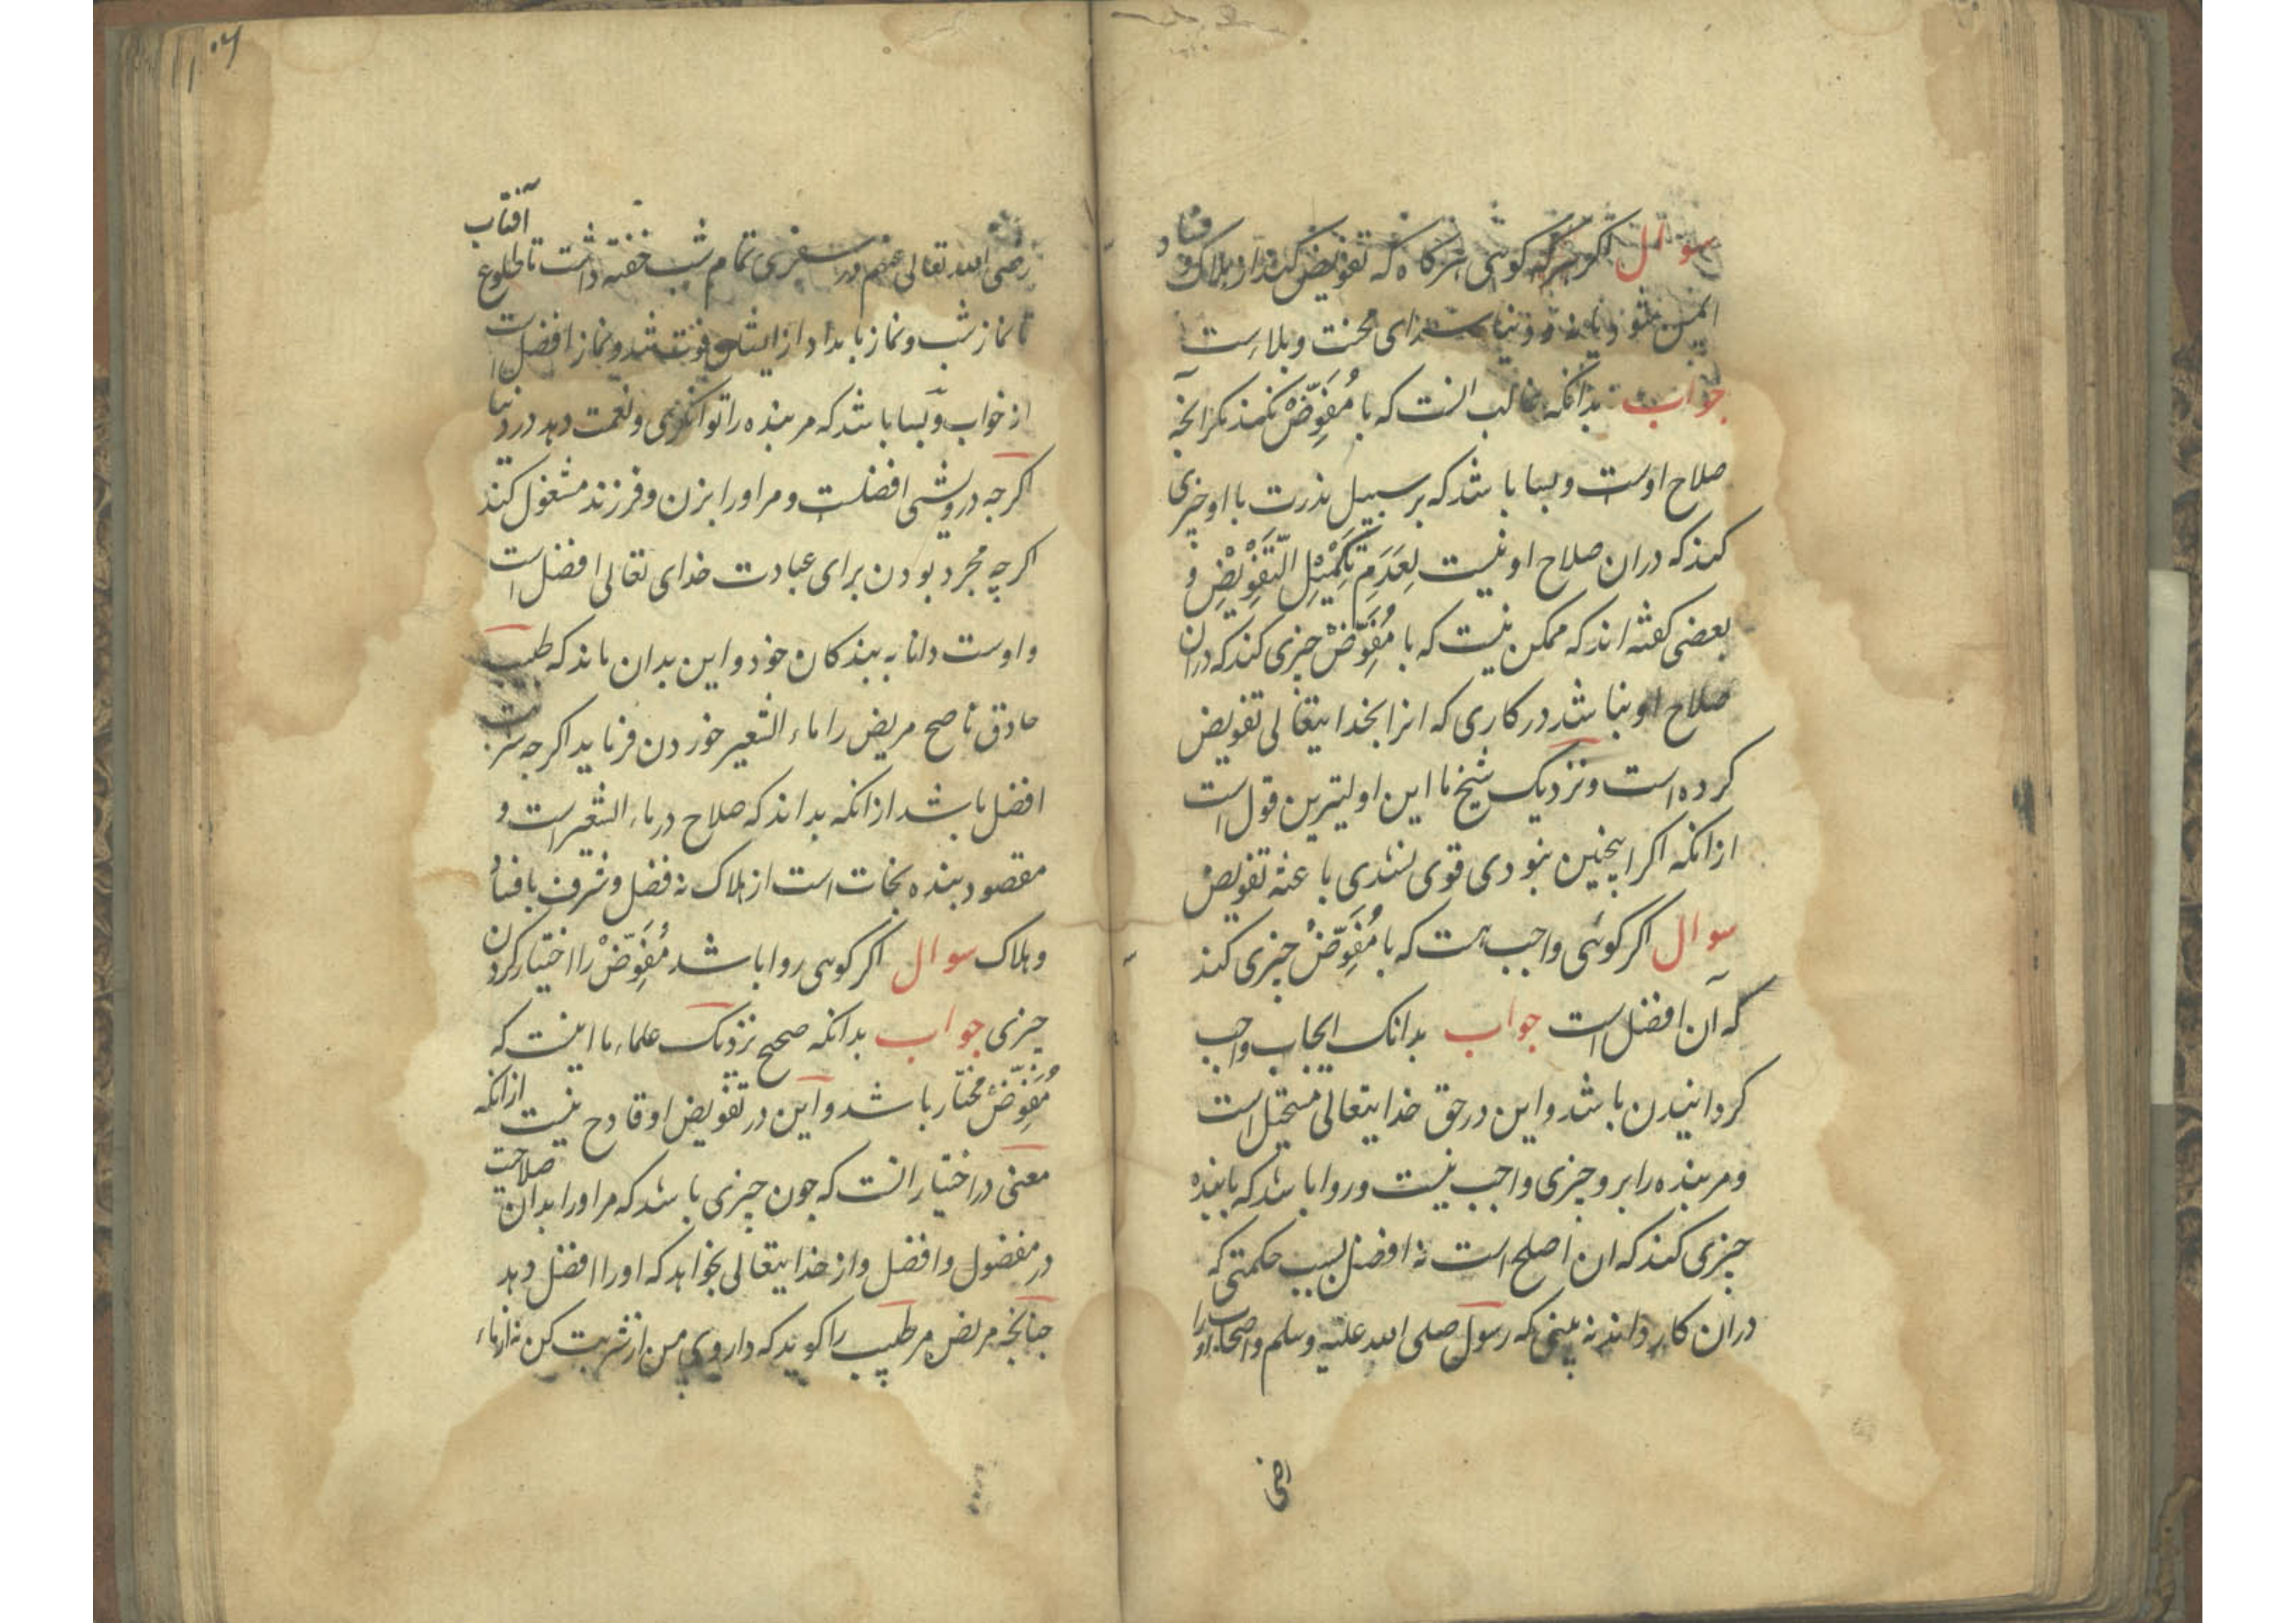 سوال اکر کوئی هرکاه که تفویض کند از هلاک و فساد
ایمن شود یا نه و دنیا سرای محنت و بلاء است
جواب بدانکه غالب انست که با مُفَوِّضْ نکند مکر آنچه
صلاح اوست و بسا باشد که بر سبیل ندرت با او چیزی
کند که دران صلاح او نیست لِعَدَمِ تَکْمِیْلِ التَّفْوِیْضِ و
بعضی کفته اند که ممکن نیست که با مُفَوِّضْ چیزی کند که دران
صلاح او نباشد در کاری که انرا بخدایتعالی تفویض
کرده است و نزدیک شیخ ما این اولیترین قول است
از انکه اکر اینچنین نبودی قوی نشدی باعثه تفویض
سوال اکر کوئی واجب هست که با مُفَوِّضْ چیزی کند
که آن افضل است جواب بدانک ایجاب واجب
کردانیدن باشد و این در حق خدایتعالی مستحیل است
و مر بنده را بر و چیزی واجب نیست و روا باشد که با بنده
چیزی کند که ان اصلح است نه افضل بسبب حکمتی که
دران کار داند نه بینی که رسول صلی الله علیه وسلم و اصحاب او را
رضی الله تعالی عنهم در سفری تمام شب خفته داشت تا طلوع آفتاب
تا نماز شب و نماز بامداد از ایشان فوت شد و نماز افضل است
از خواب و بسا باشد که مر بنده را توانکری و نعمت دهد در دنیا
اکرچه درویشی افضلست و مر او را بزن و فرزند مشغول کند
اکرچه مجرد بودن برای عبادت خدای تعالی افضل است
و اوست دانا به بندکان خود و این بدان ماند که طبیب
حاذق ناصح مریض را ماء الشعیر خوردن فرماید اکرچه شربت
افضل باشد از انکه بداند که صلاح در ماء الشعیر است و
مقصود بنده نجات است از هلاک نه فضل و شرف با فساد
و هلاک سوال اکر کوئی روا باشد مُفَوِّضْ را اختیار کردن
چیزی جواب بدانکه صحیح نزدیک علماء ما اینست که
مُفَوِّضْ مختار باشد و این در تفویض او قادح نیست از انکه
معنی در اختیار انست که چون چیزی باشد که مر او را بدان صلاحیت
در مفضول و افضل و از خدایتعالی بخواهد که او را افضل دهد
چنانچه مریض مر طبیب را کوید که داروی من از شربت کن نه از ماء